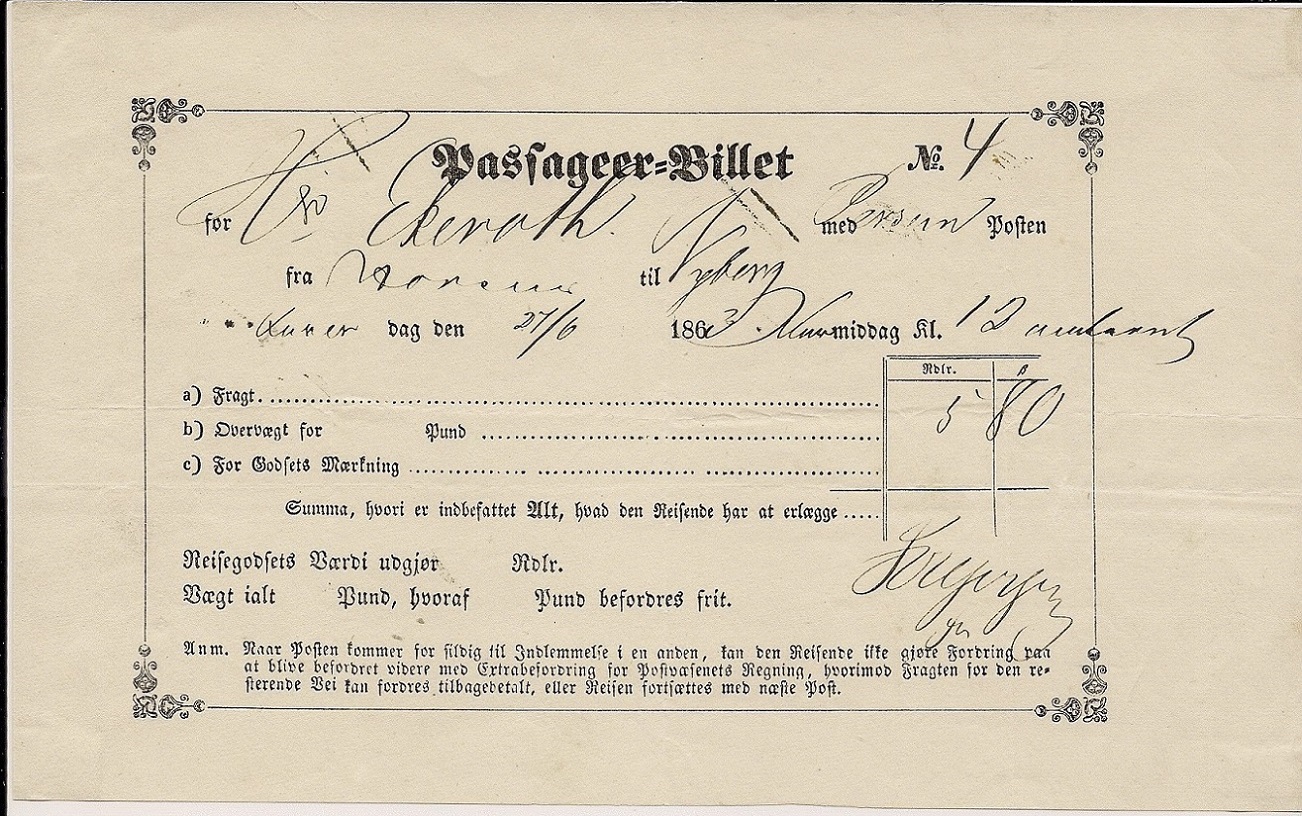 Passageer=Billet № 4
for Ekeroth. med Person Posten
fra til Nyborg
dag den 27/6 1863 middag Kl. 12
Rdlr. ß
a) Fragt. 5 80
b) Overvægt for Pund
c) For Godsets Mærkning
Summa, hvori er indbefattet Alt, hvad den Reisende har at erlægge
Reisegodsets Værdi udgjør Rdlr.
Vægt ialt Pund, hvoraf Pund befordres frit.
Anm. Naar Posten kommer for sildig til Indlemmelse i en anden, kan den Reisende ikke gjøre Fordring paa
at blive befordret videre med Extrabefordring for Postvæsenets Regning, hvorimod Fragten for den re-
sterende Vei kan fordres tilbagebetalt, eller Reisen fortsættes med næste Post.